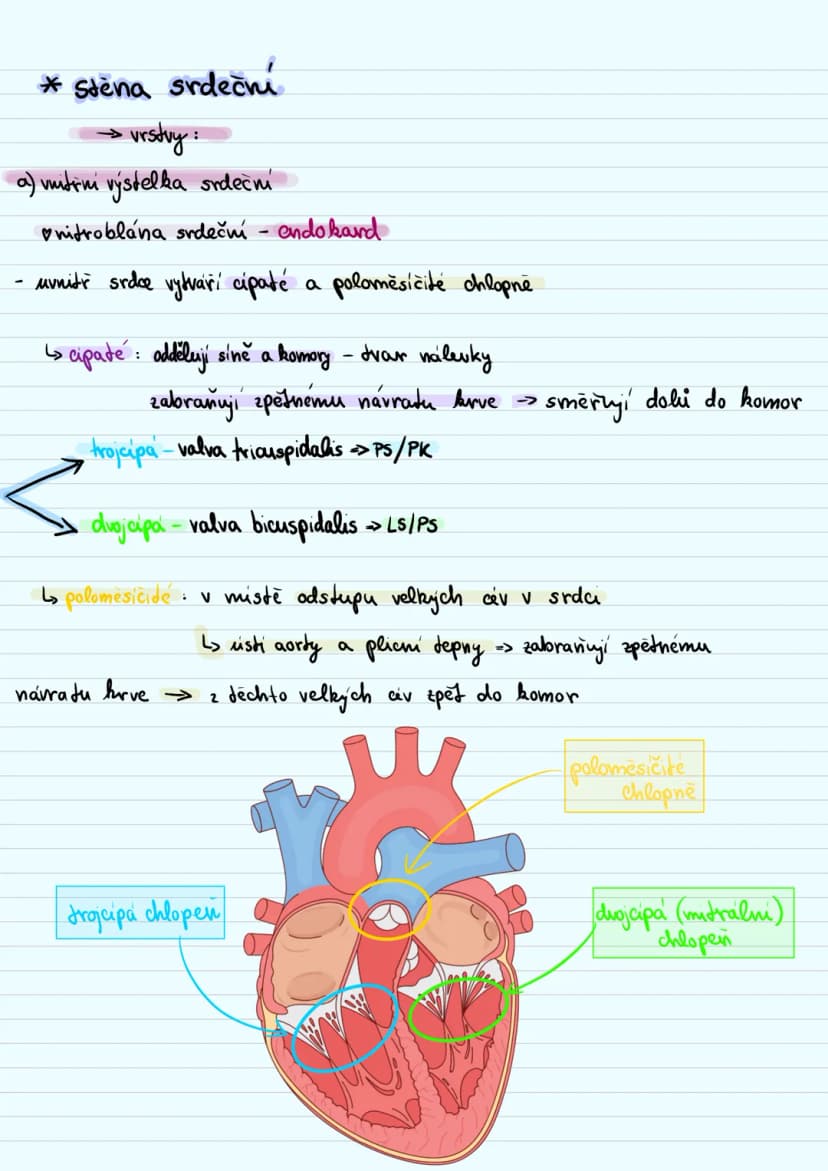 * stěna srdeční
→ vrstvy:
a) vnitřní výstelka srdeční
♡ nitroblána srdeční - endokard
- uvnitř srdce vytváří cípaté a poloměsíčité chlopně
↳ cípaté: oddělují síně a komory - tvar nálevky
zabraňují zpětnému návratu krve → směřují dolů do komor
trojcípá - valva tricuspidalis → PS/PK
dvojcípá - valva bicuspidalis → LS/PS
↳ poloměsíčité: v místě odstupu velkých cév v srdci
↳ ústí aorty a plicní tepny → zabraňují zpětnému
návratu krve → z těchto velkých cév zpět do komor
poloměsíčité
chlopně
trojcípá chlopeň
dvojcípá (mitrální)
chlopeň